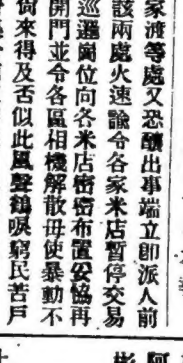 家渡等處又恐釀出事端立卽派人前
該兩處火速諭令各家米店暫停交易
巡邏崗位向各米店密密布置妥協再
開門並令各區相機解散毋使暴動不
尙來得及否似此風聲鶴唳窮民苦戶
阿
彬